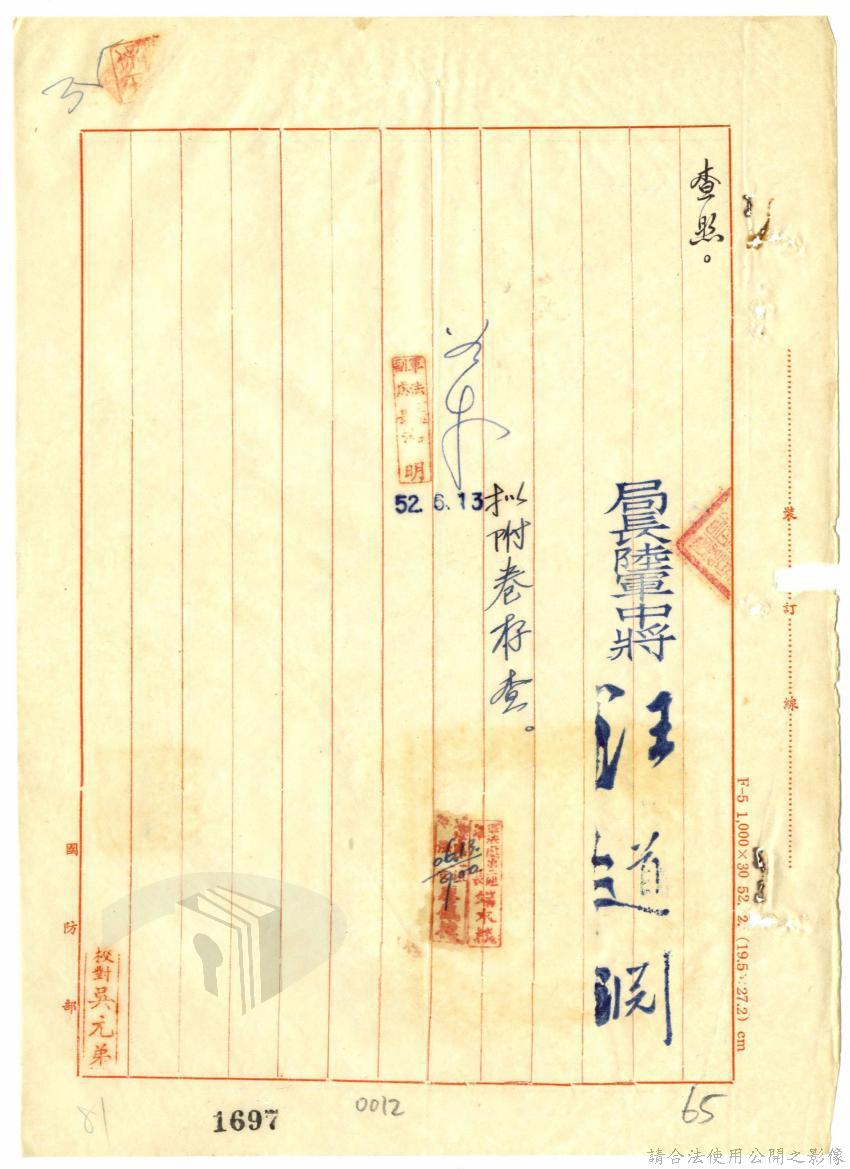 查照。
局長陸軍中將
汪道淵
擬附卷存查。
52. 6. 13
校對吳元弟
國防部
裝訂線
F-5 1,000×30 52. 2. (19.5×27.2) cm
81
1697
0012
65
請合法使用公開之影像